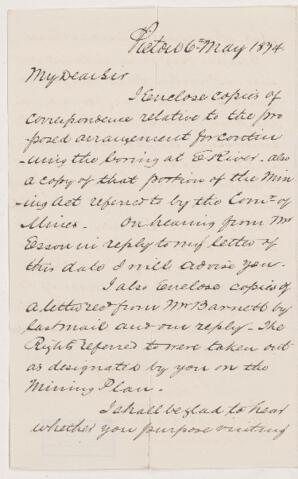 Pictou 6th May 1874.
My Dear Sir
I Enclose copies of
correspondence relative to the pro
posed arrangement for contin
-uing the boring at E River. also
a copy of that portion of the Min
-ing Act referred to by the Comr of
Mines. On hearing from Mr
Esson in reply to my letter of
this date I will advise you.
I also Enclose copies of
a letter recd from Mr Barnett by
last mail and our reply - The
Rights referred to were taken out
as designated by you on the
Mining Plan.
I shall be glad to hear
whether you purpose visiting